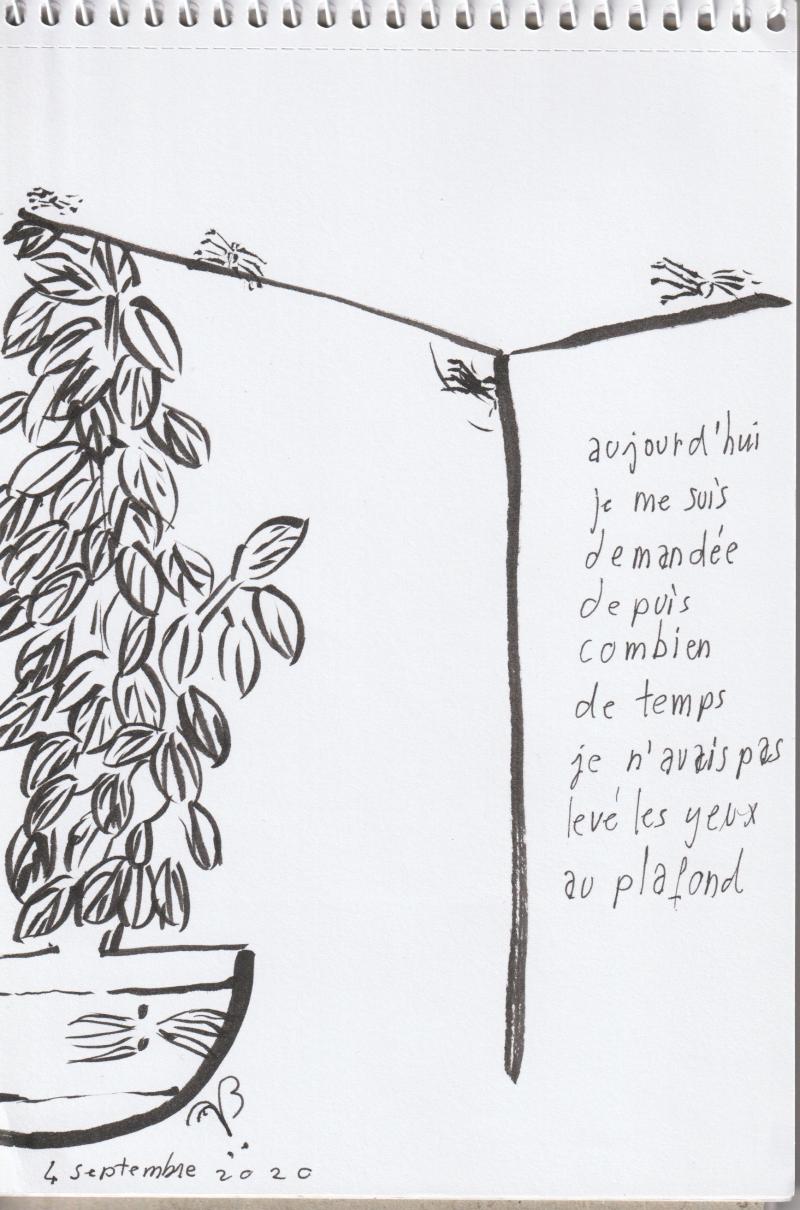 aujourd'hui
je me suis
demandée
depuis
combien
de temps
je n'avais pas
levé les yeux
au plafond
4 septembre 2020